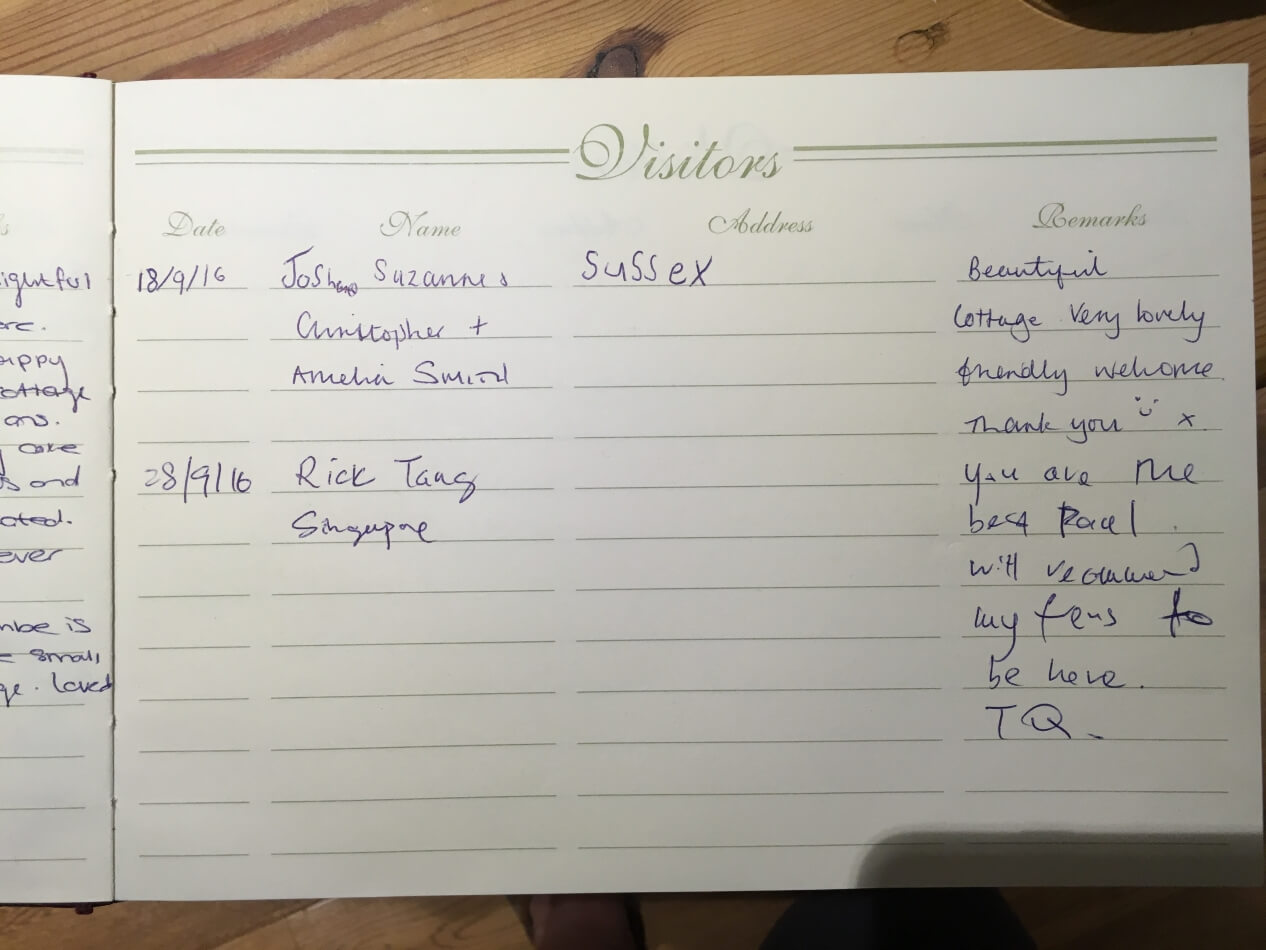 Visitors
Date Name Address Remarks
18/9/16 Josh Suzanne Sussex Beautiful
Christopher + Cottage Very lovely
Amelia friendly welcome
Thank you x.
28/9/16 Rick Tang you are the
Singapore best
will recommend
my to
be here.
TQ.
ightful
ppy
ottage
ons.
cake
s and
ated.
ever
mbe is
small,
ge. loved